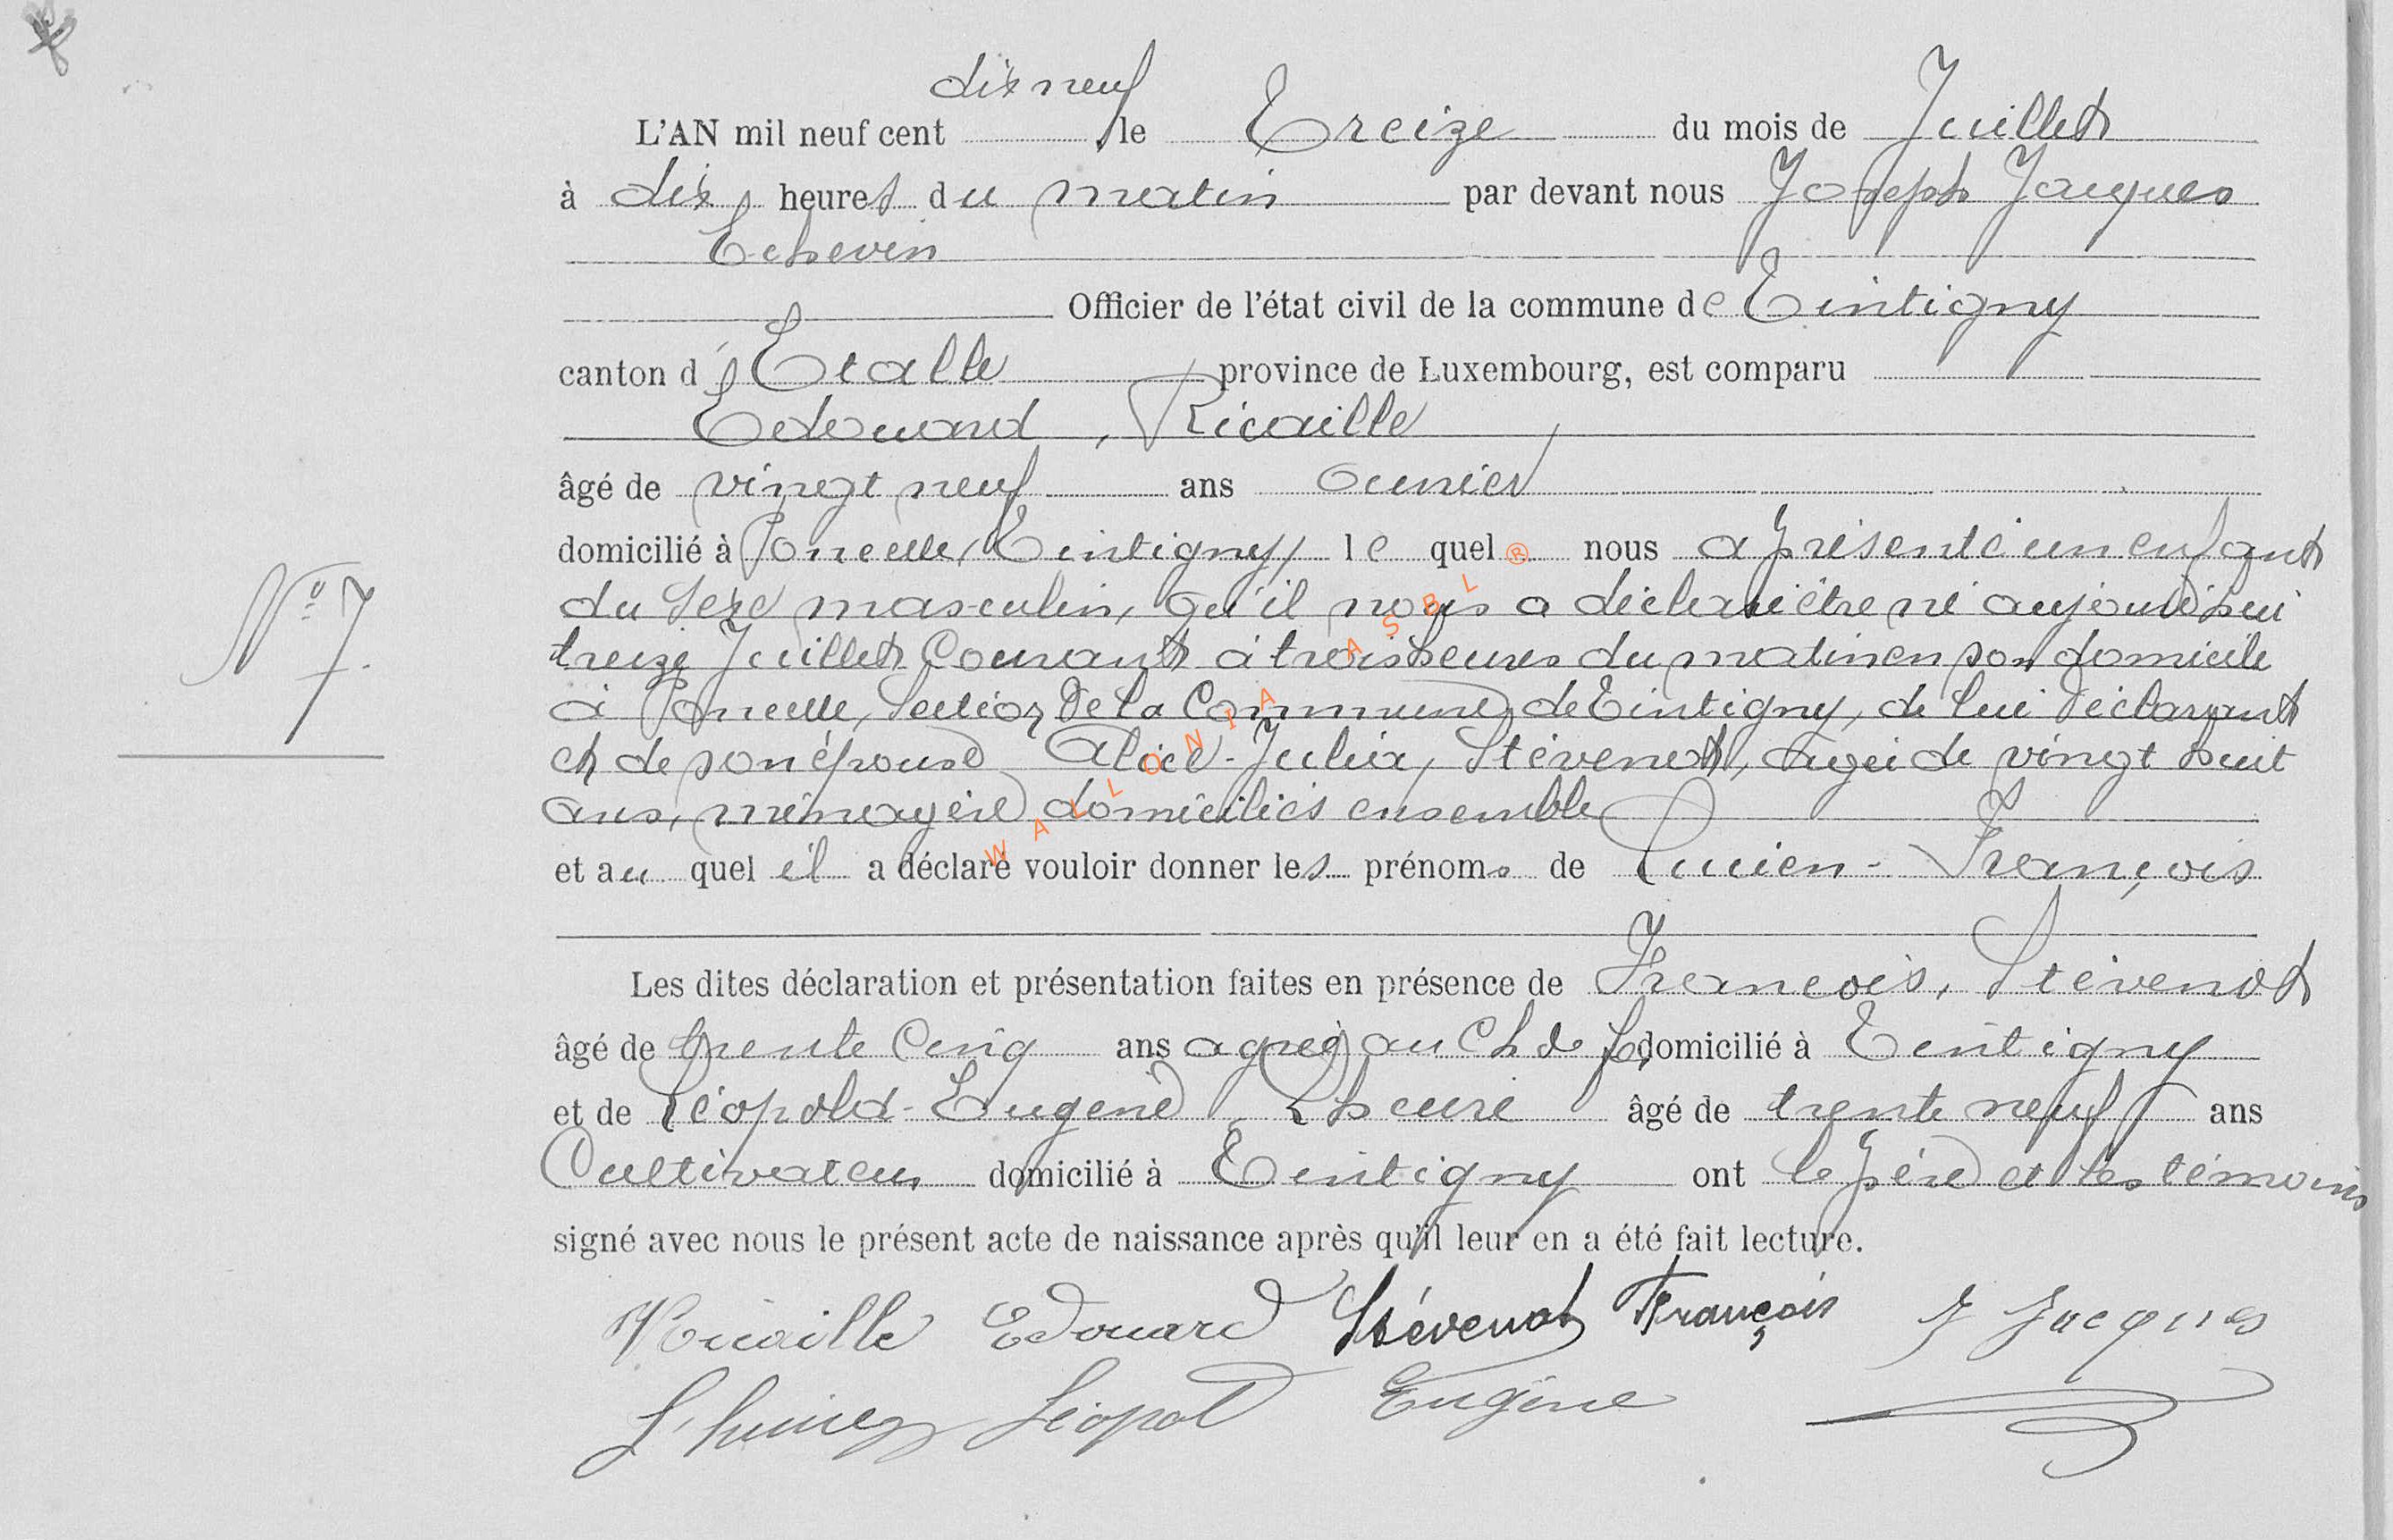 dix neuf
L'AN mil neuf cent le Treize du mois de Juillet
à dix heures du matin par devant nous Joseph Jacques
Echevin
Officier de l'état civil de la commune de Tintigny
canton d'Etalle province de Luxembourg, est comparu
Edouard, Ricaille
âgé de vingt neuf ans ouvrier
domicilié à Poncelle (Tintigny) le quel nous a présenté un enfant
du Sexe masculin, qu'il nous a déclaré être né aujourd'hui
treize Juillet Courant à trois heures du matin en son domicile
N° 7
à Poncelle, Section De la Commune de Tintigny, de lui Déclarant
et de son épouse Alice-Julia, Stévenot, agée de vingt huit
ans, ménagère domiciliés ensemble
et au quel il a déclaré vouloir donner les prénoms de Lucien-François
Les dites déclaration et présentation faites en présence de François, Stévenot
âgé de trente Cinq ans agréé au Ch de f. domicilié à Tintigny
et de Léopold-Eugène âgé de trente neuf ans
Cultivateur domicilié à Tintigny ont le père et les témoins
signé avec nous le présent acte de naissance après qu'il leur en a été fait lecture.
Ricaille Edouard Stévenot François J Jacques
Léopold Eugène
WALLONIA ASBL ®